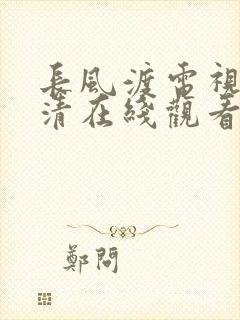 長風渡電視
清在綫觀看
鄭問